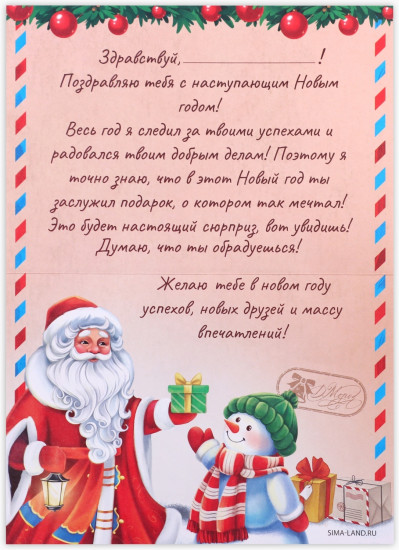 Здравствуй, ____________________!
Поздравляю тебя с наступающим Новым
годом!
Весь год я следил за твоими успехами и
радовался твоим добрым делам! Поэтому я
точно знаю, что в этот Новый год ты
заслужил подарок, о котором так мечтал!
Это будет настоящий сюрприз, вот увидишь!
Думаю, что ты обрадуешься!
Желаю тебе в новом году
успехов, новых друзей и массу
впечатлений!
Д.Мороз
SIMA-LAND.RU